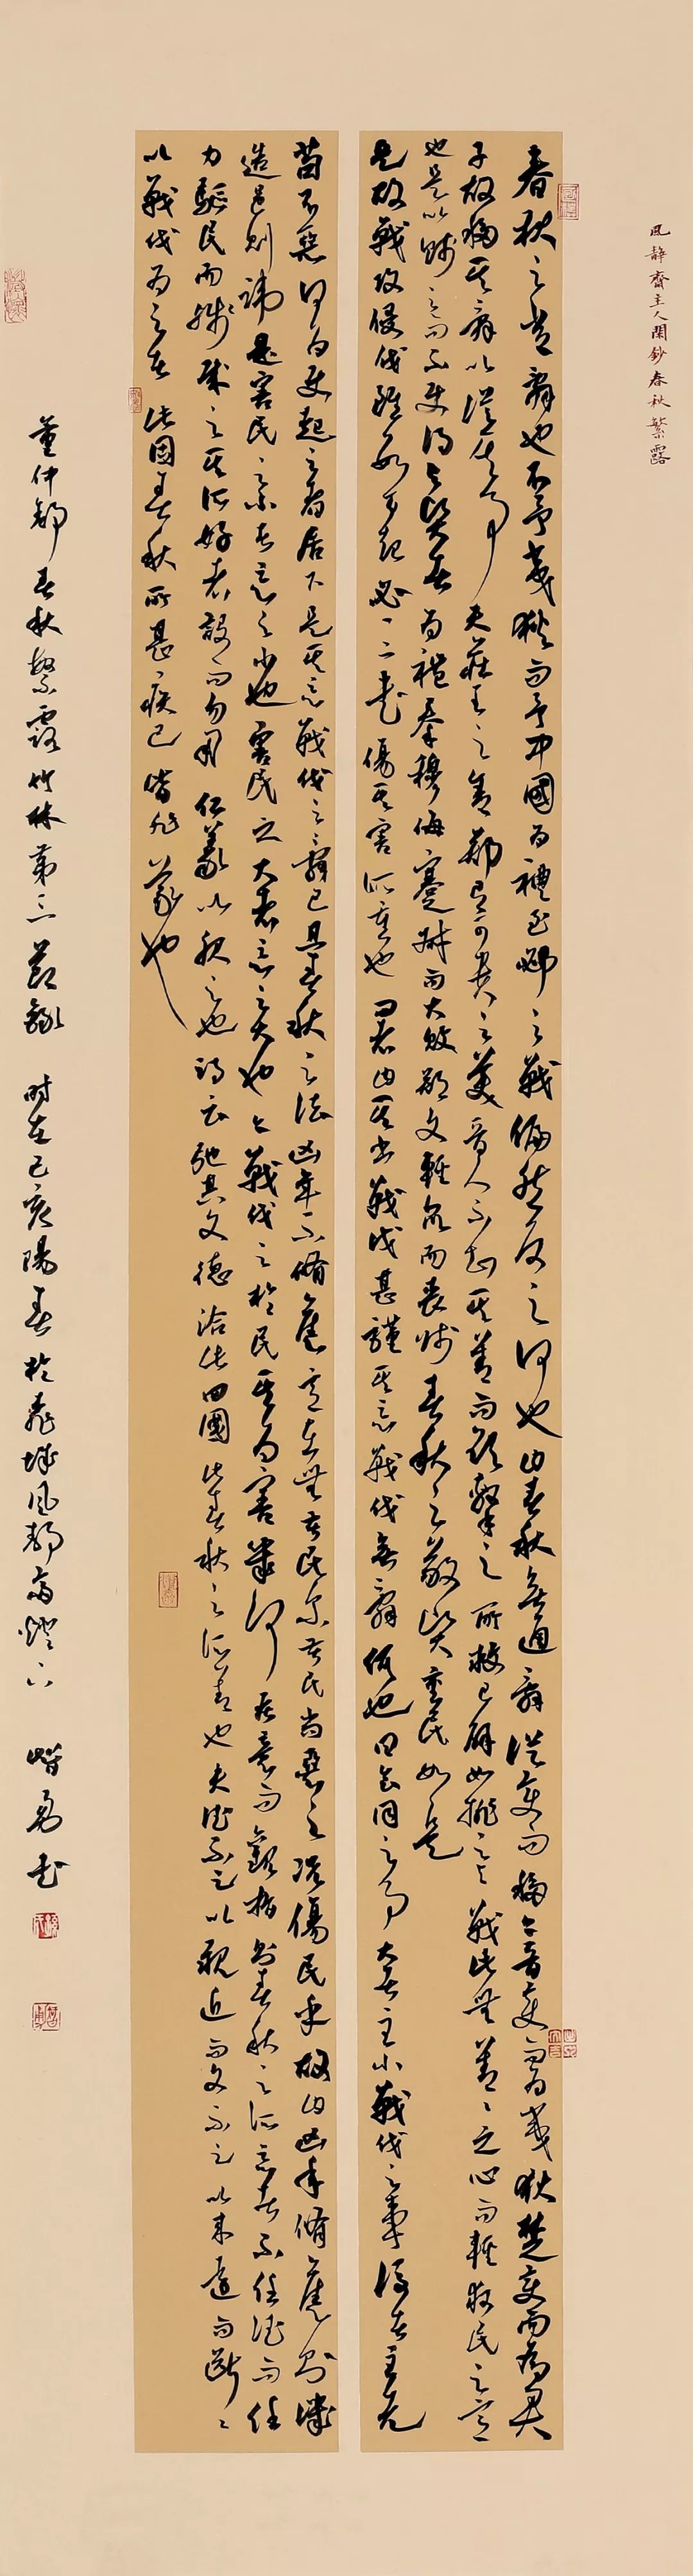 風靜齋主人閑鈔春秋繁露
春秋之常辭也不予夷狄而予中國為禮至邲之戰偏然反之何也曰春秋無通辭從變而移今晉變而為夷狄楚變而為君
子故移其辭以從其事夫莊王之舍鄭有可貴之美晉人不知其善而欲擊之所救已解如挑與之戰此無善善之心而輕救民之意
也是以賤之而不使得與賢者為禮秦穆侮蹇叔而大敗鄭文輕眾而喪師春秋之敬賢重民如是
是故戰攻侵伐雖數百起必一二書傷其害所重也問者曰其書戰伐甚謹其惡戰伐無辭何也曰會同之事大者主小戰伐之事後者主先
苟不惡何為使起之者居下是其惡戰伐之辭已且春秋之法凶年不脩舊意在無苦民爾苦民尚惡之況傷民乎故曰凶年脩舊則譏
造邑則諱是害民之小者惡之小也害民之大者惡之大也今戰伐之於民其為害幾何考意而觀指則春秋之所惡者不任德而任
力驅民而殘賊之其所好者設而勿用仁義以服之也詩云弛其文德洽此四國此春秋之所善也夫德不足以親近而文不足以來遠而斷斷
以戰伐為之者此固春秋所甚疾已皆非義也
董仲舒春秋繁露竹林第三節錄 時在己亥陽春於龍城風靜齋燈下